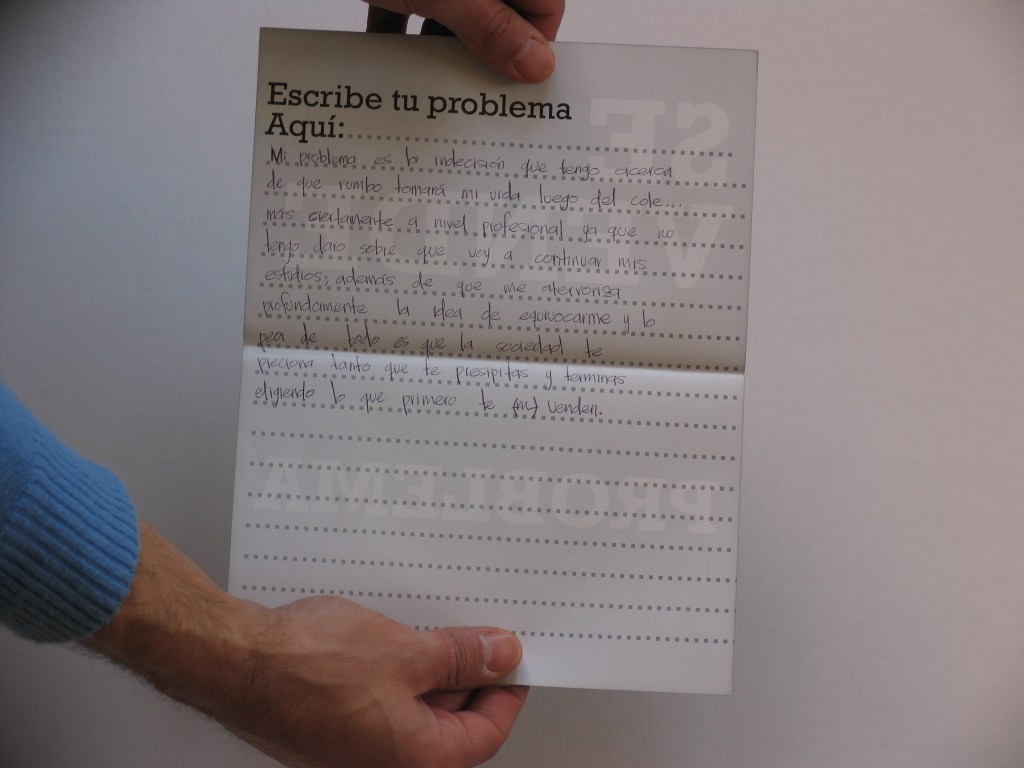 Escribe tu problema
Aquí:
Mi problema es la indecisión que tengo acerca
de que rumbo tomará mi vida luego del cole...
más ciertamente a nivel profesional ya que no
tengo claro sobre que voy a continuar mis
estudios; además de que me aterroriza
profundamente la idea de equivocarme y lo
peor de todo es que la sociedad te
preciona tanto que te presipitas y terminas
eligiendo lo que primero te venden.
SE
VENDE
PROBLEMA